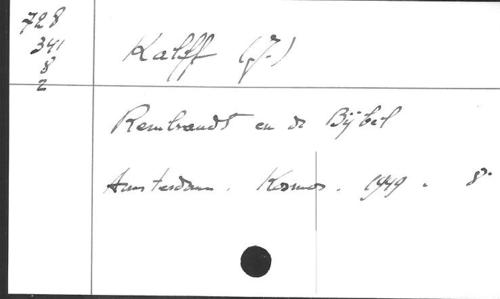 728
341
8
2
Kalff (J.)
Rembrandt en de Bijbel
Amsterdam. Kosmos. 1949. 8°